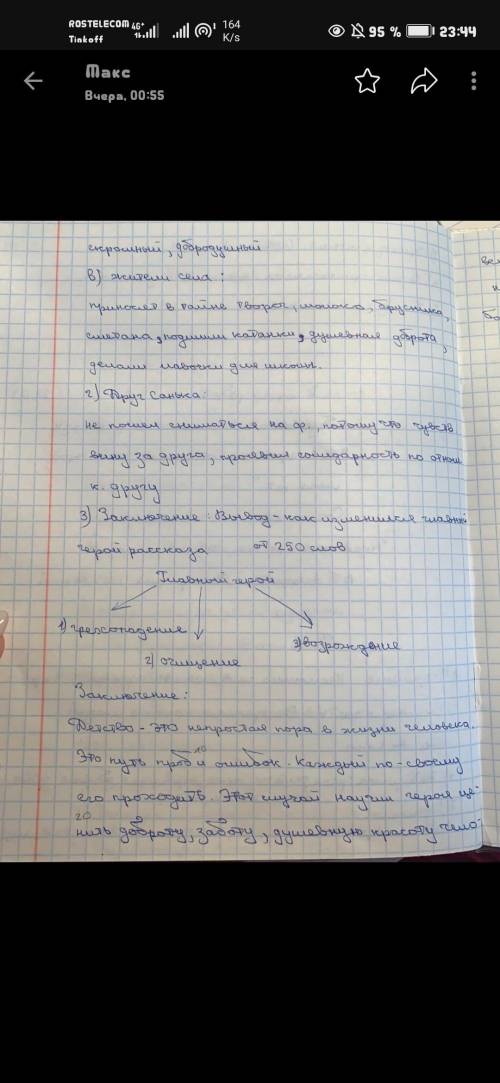 ROSTELECOM 4G+ 164 95 % 23:44
Tinkoff K/s
Макс
Вчера, 00:55
скромный, добродушный
в) жители села:
приносят в тайне творог, молоко, брусника,
сметана, подшили катанки, душевная доброта,
делали лавочки для школы.
г) Друг Санька:
не пошел сниматься на ф., потому что чувств
вину за друга, проявил солидарность по отнош
к. другу
3) Заключение: Вывод - как изменился главный
герой рассказа от 250 слов
Главный герой
1) грехопадение
2) очищение
3) возрождение
Заключение:
Детство - это непростая пора в жизни человека.
Это путь проб и ошибок. Каждый по-своему
10
его проходить. Этот случай научил героя це-
20
нить доброту, заботу, душевную красоту чело-